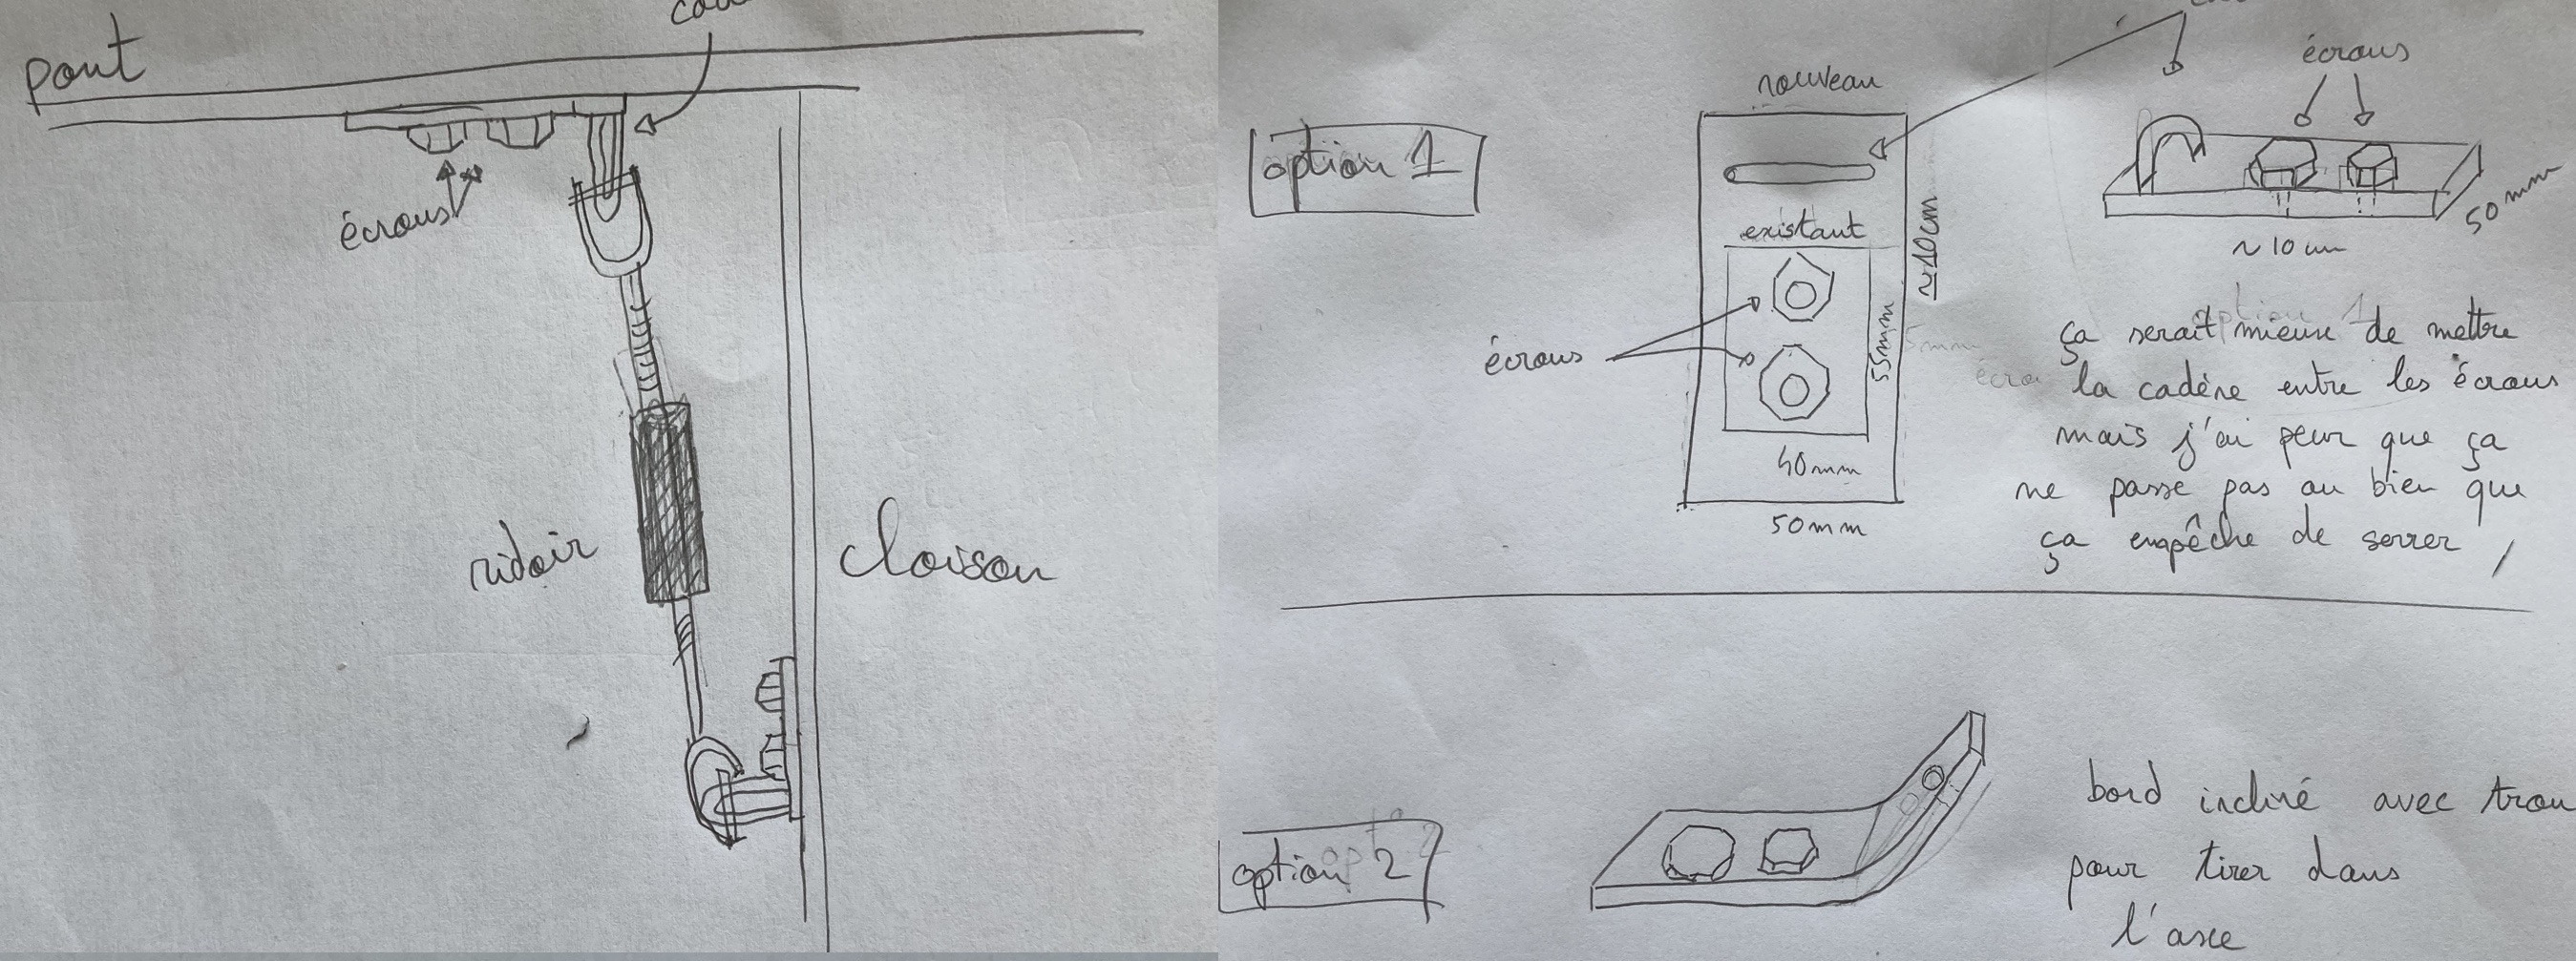 pont
écrous
ridoir
cloison
option 1
nouveau
existant
écrous
55mm
40mm
50mm
~10cm
écrous
50mm
~10cm
ça serait mieux de mettre
la cadène entre les écrous
mais j'ai peur que ça
ne passe pas ou bien que
ça empêche de serrer
option 2
bord incliné avec trou
pour tirer dans
l'axe